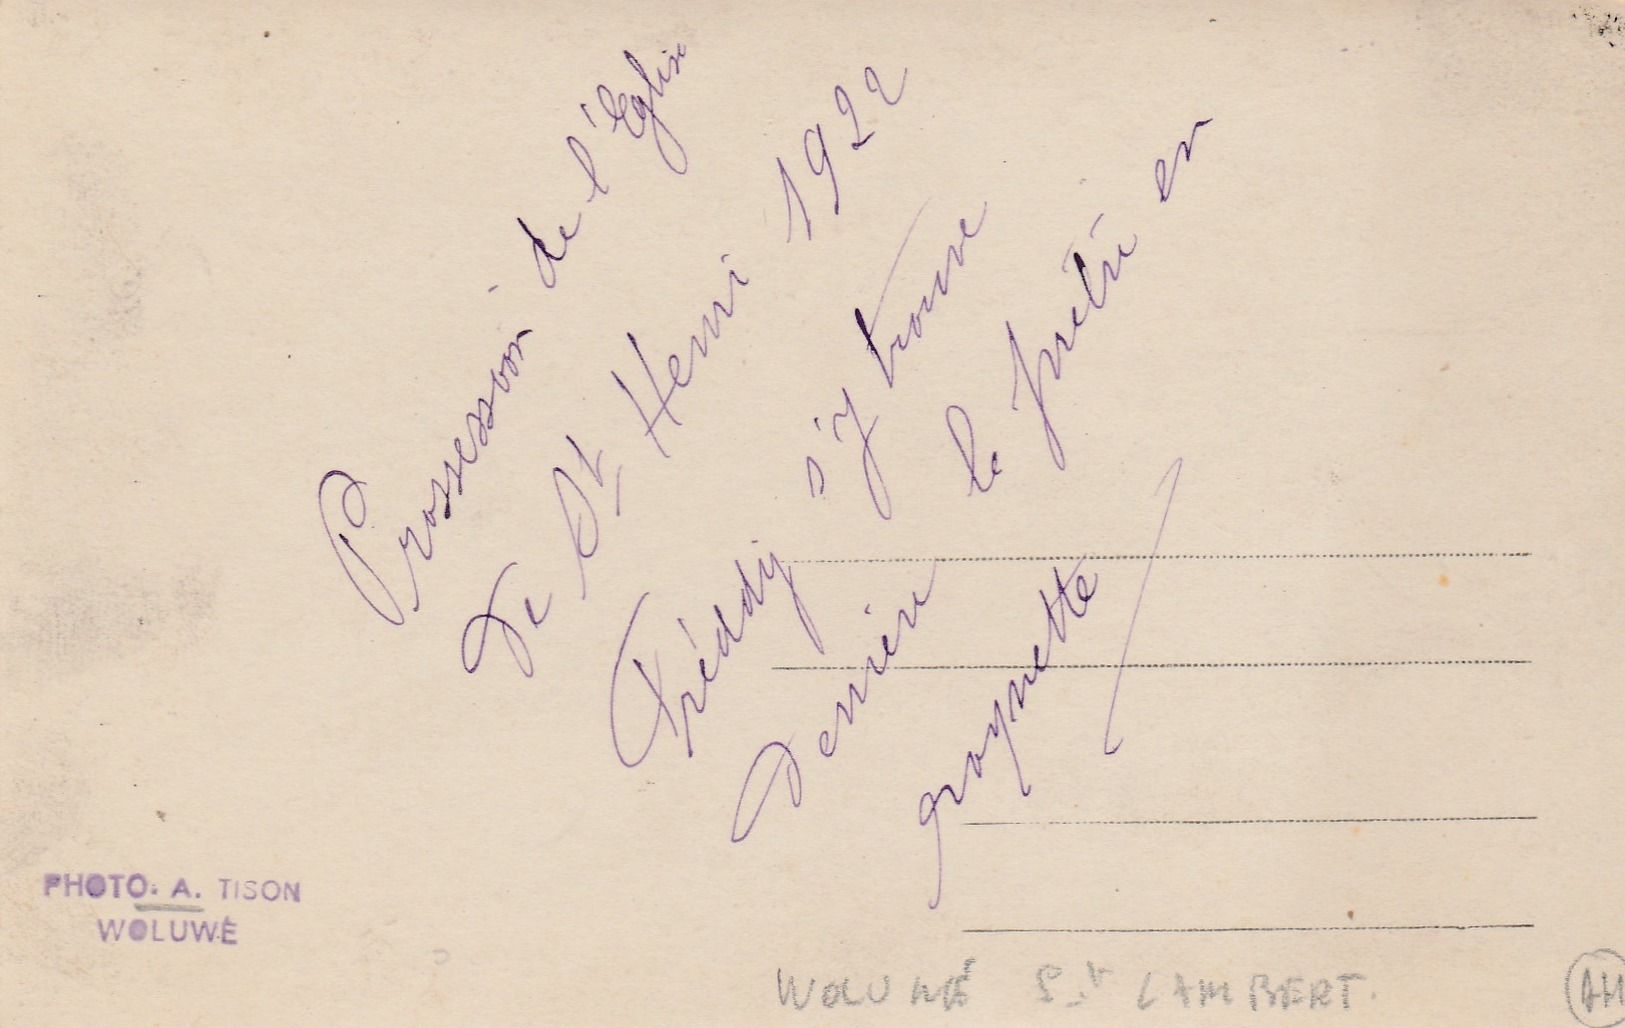 Prossession de l'Eglise
De St Henri 1922
Fréddy s'y trouve
Derrière le prêtre en
roquette
PHOTO. A. TISON
WOLUWÉ
WOLUWÉ St LAMBERT.
AH